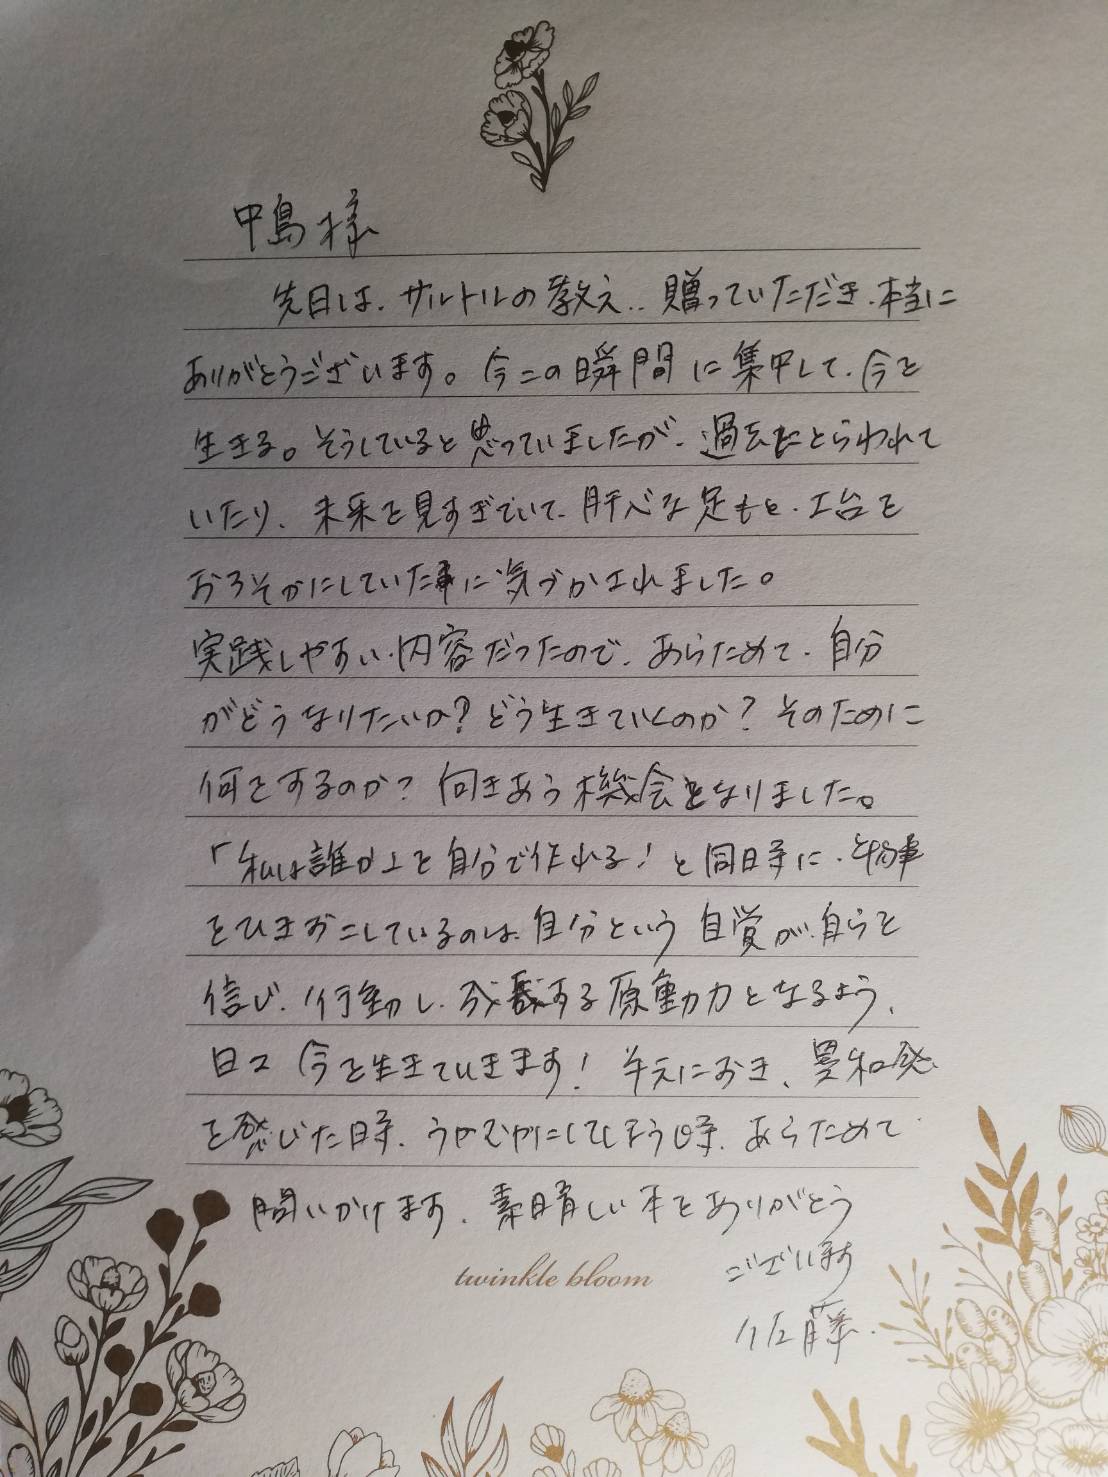 中島様
先日は、サルトルの教え、贈っていただき、本当に
ありがとうございます。今この瞬間に集中して、今を
生きる。そうしていると思っていましたが、過去にとらわれて
いたり、未来を見すぎていて、肝心な足もと、土台を
おろそかにしていた事に気づかされました。
実践しやすい内容だったので、あらためて、自分
がどうなりたいか?どう生きていくのか?そのために
何をするのか?向きあう機会となりました。
「私は誰か上を自分で作れる!と同時に、物事
をひきおこしているのは、自分という自覚が、自らを
信じ、行動し、成長する原動力となるよう、
日々今を生きていきます!手元におき、違和感
を感じた時、うやむやにしてしまう時、あらためて
問いかけます。素晴しい本をありがとう
ございます
佐藤.
twinkle bloom